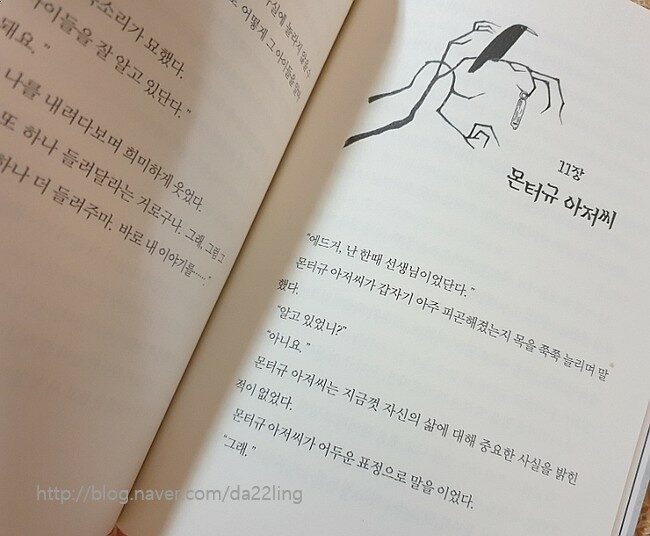 수소리가 묘했다.
아이들을 잘 알고 있단다."
돼요."
나를 내려다보며 희미하게 웃었다.
또 하나 들려달라는 거로구나. 그래, 그럼 그
하나 더 들려주마. 바로 내 이야기를……"
11장
몬터규 아저씨
"에드거, 난 한때 선생님이었단다."
몬터규 아저씨가 갑자기 아주 피곤해졌는지 목을 쭉쭉 늘리며 말
했다.
"알고 있었니?"
"아니요."
몬터규 아저씨는 지금껏 자신의 삶에 대해 중요한 사실을 밝힌
적이 없었다.
몬터규 아저씨가 어두운 표정으로 말을 이었다.
"그래."
http://blog.naver.com/da22ling